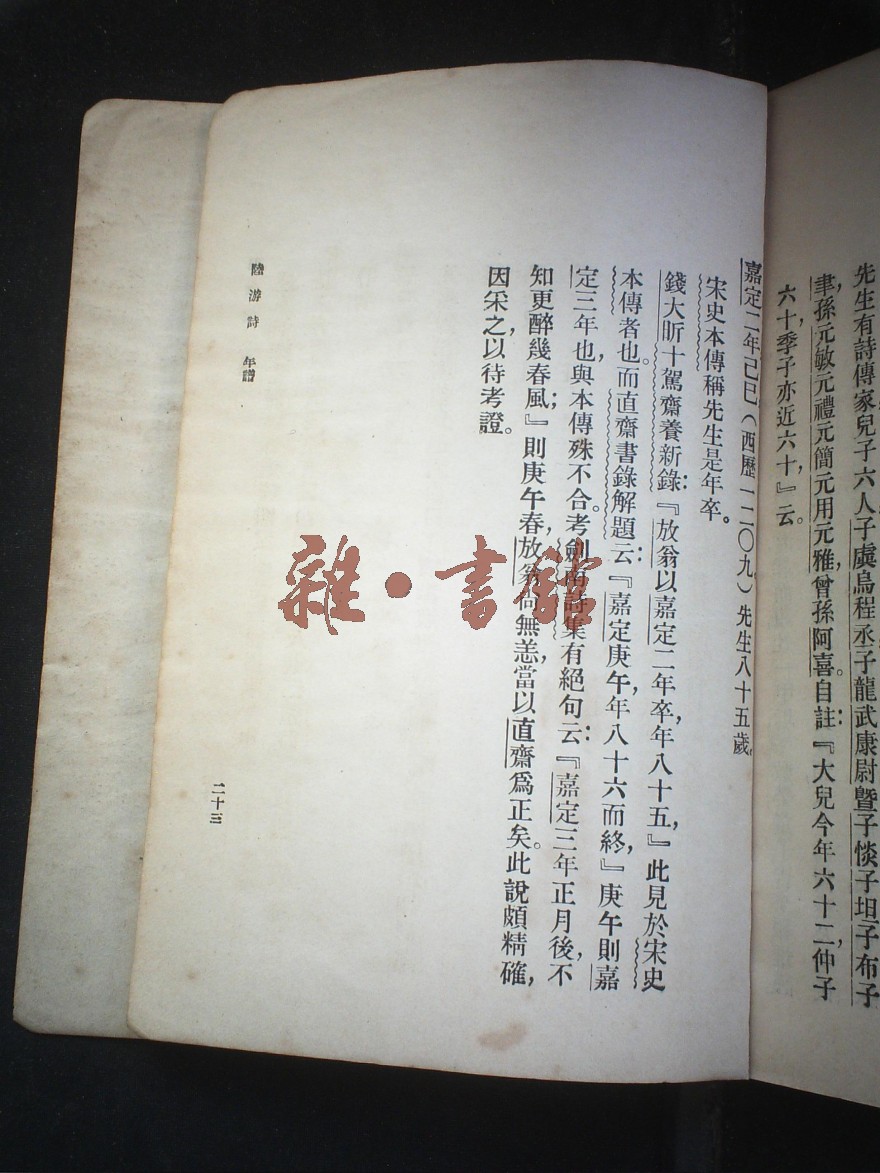 先生有詩傳家兒子六人子虡烏程丞子龍武康尉曁子惔子坦子布子
聿孫元敏元禮元簡元用元雅曾孫阿喜。自註：『大兒今年六十二，仲子
六十，季子亦近六十，』云。
嘉定二年己巳（西曆一二〇九）先生八十五歲。
宋史本傳稱先生是年卒。
錢大昕十駕齋養新錄：『放翁以嘉定二年卒，年八十五，』此見於宋史
本傳者也。而直齋書錄解題云：『嘉定庚午，年八十六而終，』庚午則嘉
定三年也，與本傳殊不合。考劍南詩集有絕句云：『嘉定三年正月後，不
知更醉幾春風；』則庚午春，放翁尚無恙，當以直齋爲正矣。此說頗精確，
因采之，以待考證。
陸游詩 年譜
二十三
雜·書館